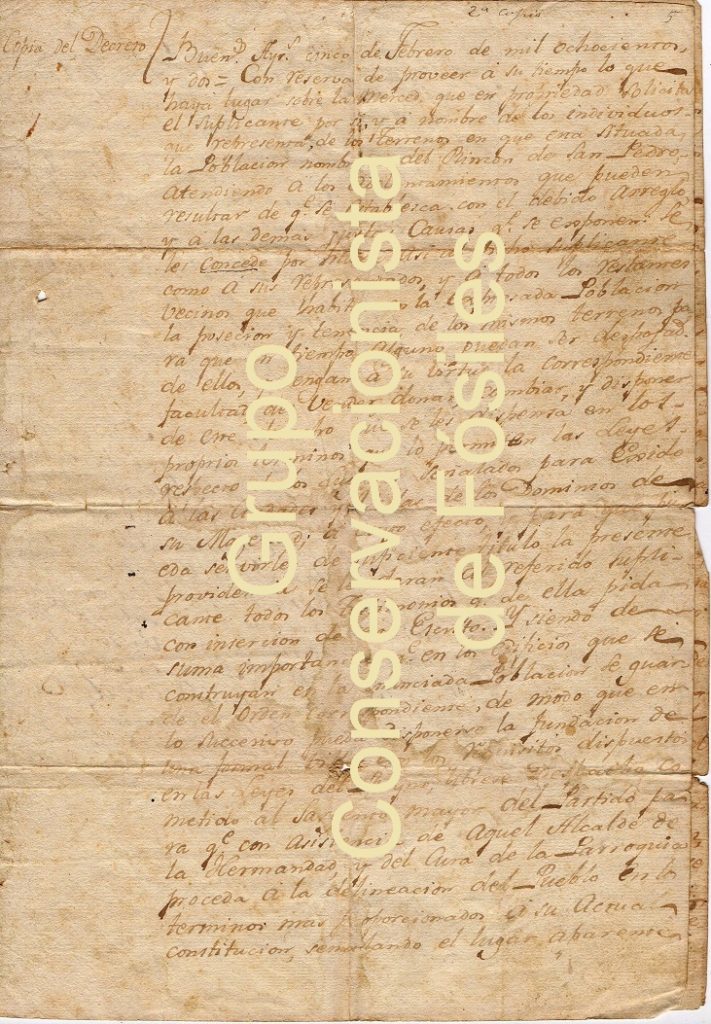 2ª Copia
5
Copia del Decreto
Buenˢ Ayˢ cinco de Febrero de mil ochocientos,
y dos = Con reserva de proveer à su tiempo lo que
haya lugar sobre la Merced, que en propiedad solicita
el suplicante por si, y a nombre de los individuos
que representa, de los Terrenos en que esta situada,
la Poblacion nombrada del Rincon de San Pedro,
Atendiendo à los que pueden
resultar de qᵉ se establesca con el debido Arreglo
y à las demas justas Causas qᵉ se exponen: Se
les Concede por suplicante
como à sus representados, y à todos los restantes
vecinos que habitan en la expresada Poblacion
la posecion y tenencia de los mismos terrenos pa
ra que en tiempo alguno puedan ser despojad
de ellos, tengan à su virtud la correspondiente
facultad de Vender, donar, Cambiar, y disponer
de se les dispensa en los
proprios terminos en las Leyes
respecto señalados para Exido
à las de los Dominios de
su Mages efecto, y para
eda servirle de suficiente titulo la presente
providencia se le daran al referido supli-
cante todos los Testimonios qᵉ de ella pida
con insercion de Escrito. Y siendo de
suma importancia en los Edificios que se
construyan en la enunciada Poblacion se guar
de el Orden correspondiente, de modo que en
lo successivo pueda disponerse la fundacion de
una formal los requisitos dispuestos
en las Leyes del Reyno, librese Despacho co
metido al Sargento mayor del Partido pa
ra qᵉ con Asistencia de Aquel Alcalde de
la Hermandad, y del Cura de la Parroquia
proceda à la delineacion del Pueblo en los
terminos mas proporcionados à su Actual
constitucion, señalando el lugar aparente
Grupo
Conservacionista
de Fósiles